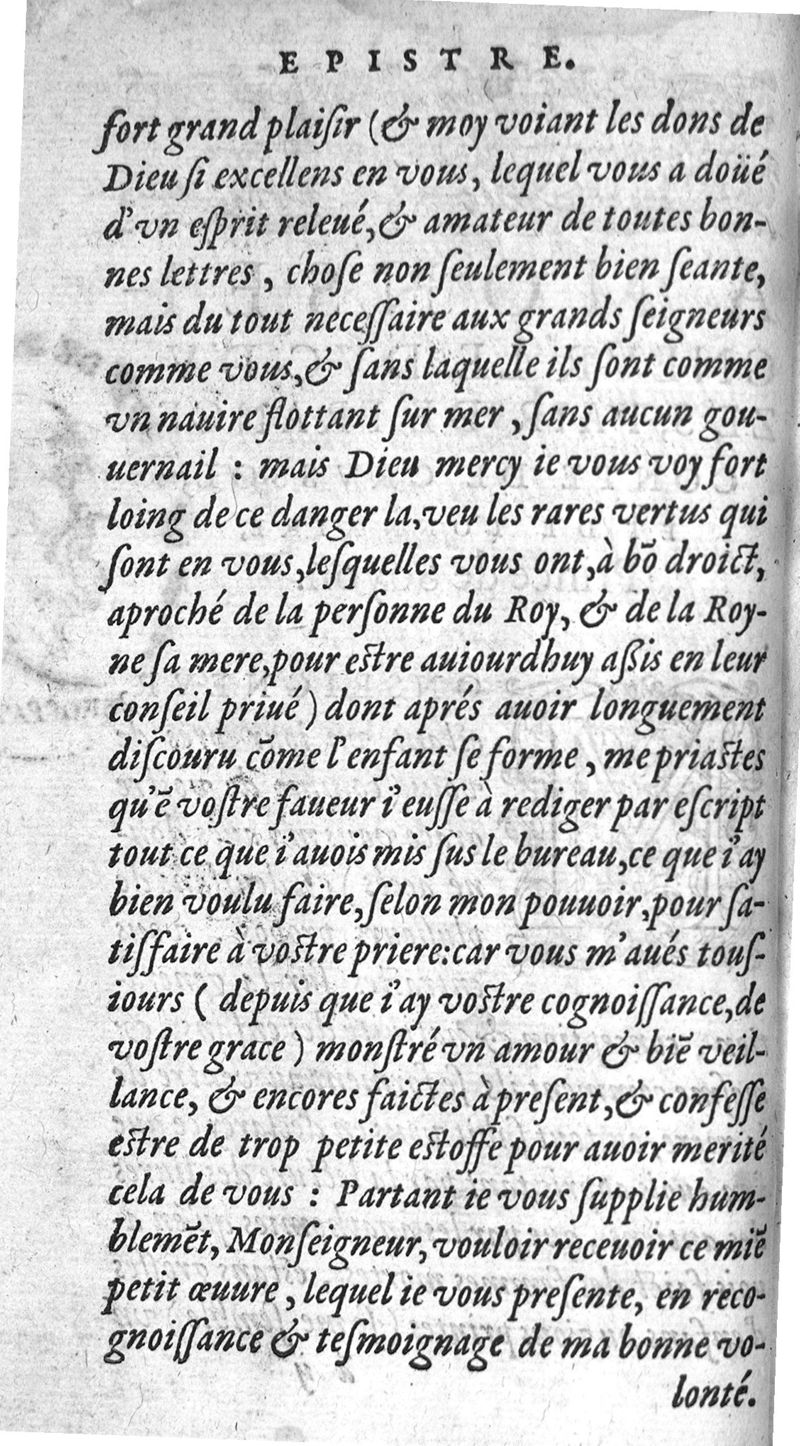 EPISTRE.
fort grand plaiſir (& moy voiant les dons de
Dieu ſi excellens en vous, lequel vous a doüé
d'vn eſprit releué, & amateur de toutes bon-
nes lettres, choſe non ſeulement bien ſeante,
mais du tout neceſſaire aux grands ſeigneurs
comme vous, & ſans laquelle ils ſont comme
vn nauire flottant ſur mer, ſans aucun gou-
uernail : mais Dieu mercy ie vous voy fort
loing de ce danger la, veu les rares vertus qui
ſont en vous, leſquelles vous ont, à bõ droict,
aproché de la perſonne du Roy, & de la Roy-
ne ſa mere, pour eſtre auiourdhuy aßis en leur
conſeil priué) dont aprés auoir longuement
diſcouru cõme l'enfant ſe forme, me priaſtes
qu'ẽ voſtre faueur i'euſſe à rediger par eſcript
tout ce que i'auois mis ſus le bureau, ce que i'ay
bien voulu faire, ſelon mon pouuoir, pour ſa-
tiſfaire à voſtre priere: car vous m'aués touſ-
iours ( depuis que i'ay voſtre cognoiſſance, de
voſtre grace ) monſtré vn amour & biẽ veil-
lance, & encores faictes à preſent, & confeſſe
eſtre de trop petite eſtoffe pour auoir merité
cela de vous : Partant ie vous ſupplie hum-
blemẽt, Monſeigneur, vouloir receuoir ce miẽ
petit œuure, lequel ie vous preſente, en reco-
gnoiſſance & teſmoignage de ma bonne vo-
lonté.